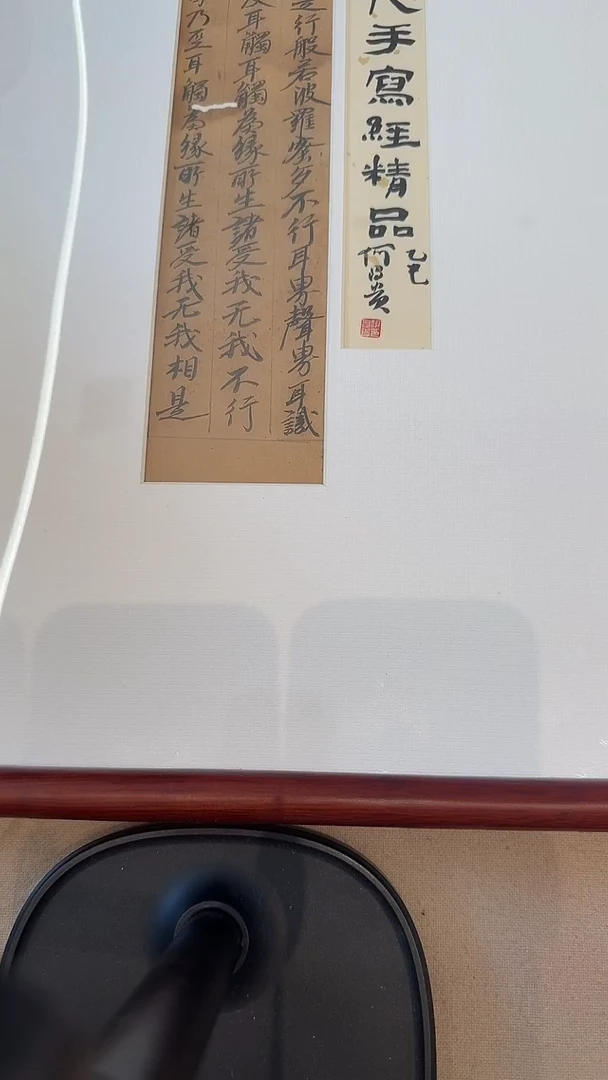 手寫經精品
乙巳
何昌貴
行般若波羅蜜多不行耳男聲男耳識
及耳觸耳觸為緣所生諸受我无我不行
乃至耳觸為緣所生諸受我无我相是